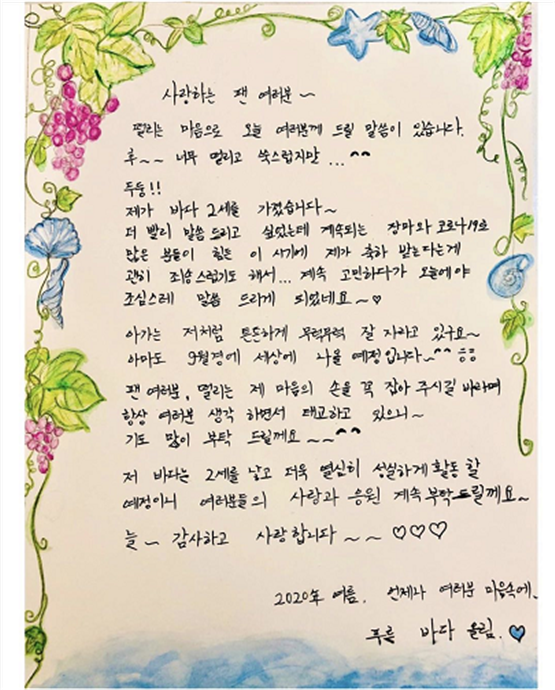 사랑하는 팬 여러분~
떨리는 마음으로 오늘 여러분께 드릴 말씀이 있습니다.
후~~ 너무 떨리고 쑥스럽지만...^^
두둥!!
제가 바다 2세를 가졌습니다~
더 빨리 말씀 드리고 싶었는데 계속되는 장마와 코로나19로
많은 분들이 힘든 이 시기에 제가 축하 받는다는게
괜히 죄송스럽기도 해서... 계속 고민하다가 오늘에야
조심스레 말씀 드리게 되었네요~♡
아가는 저처럼 튼튼하게 무럭무럭 잘 자라고 있구요~
아마도 9월경에 세상에 나올 예정입니다~^^ ㅎㅎ
팬 여러분, 떨리는 제 마음의 손을 꼭 잡아 주시길 바라며
항상 여러분 생각 하면서 태교하고 있으니~
기도 많이 부탁 드릴께요~~^^
저 바다는 2세를 낳고 더욱 열심히 성실하게 활동 할
예정이니 여러분들의 사랑과 응원 계속 부탁 드릴께요~
늘~ 감사하고 사랑합니다~~ ♡♡♡
2020年 여름. 언제나 여러분 마음속에..
푸를 바다 올림.♥